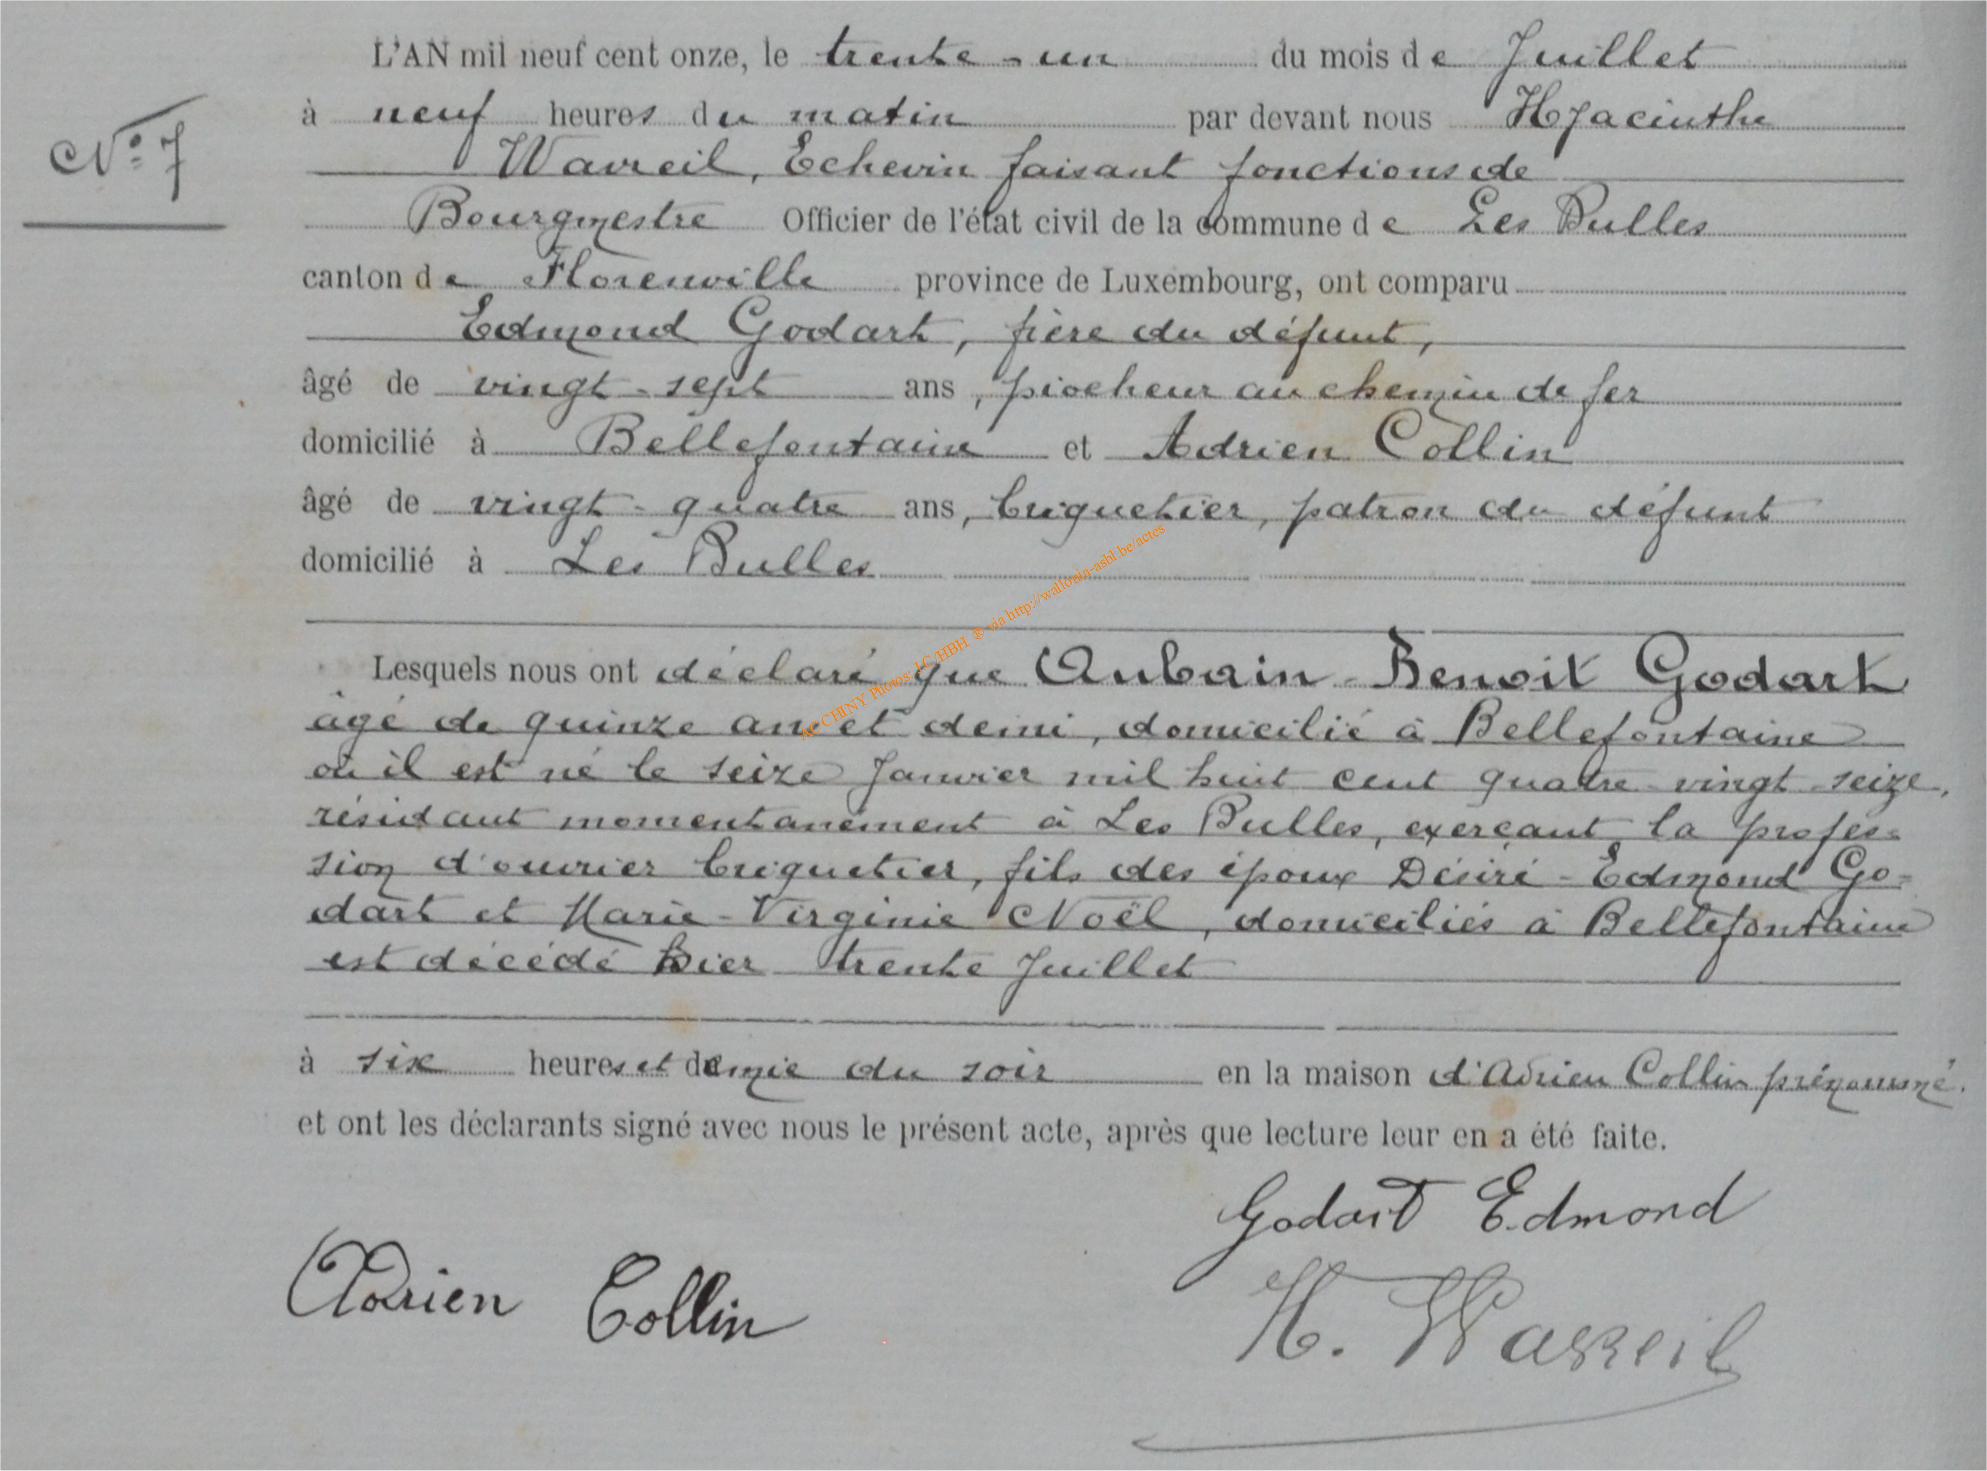 L'AN mil neuf cent onze, le trente-un du mois de Juillet
N° 7
à neuf heures du matin par devant nous Hyacinthe
Wavreil, Echevin faisant fonctions de
Bourgmestre Officier de l'état civil de la commune de Les Bulles
canton de Florenville province de Luxembourg, ont comparu
Edmond Godart, frère du défunt,
âgé de vingt-sept ans, piocheur au chemin de fer
domicilié à Bellefontaine et Adrien Collin
âgé de vingt-quatre ans, briquetier, patron du défunt
domicilié à Les Bulles
Lesquels nous ont déclaré que Aubain-Benoit Godart
âgé de quinze ans et demi, domicilié à Bellefontaine
où il est né le seize Janvier mil huit cent quatre-vingt-seize,
résidant momentanément à Les Bulles, exerçant la profes=
sion d'ouvrier briquetier, fils des époux Désiré-Edmond Go=
dart et Marie-Virginie Noël, domiciliés à Bellefontaine
est décédé hier trente Juillet
à six heures et demie du soir en la maison d'Adrien Collin prénommé.
et ont les déclarants signé avec nous le présent acte, après que lecture leur en a été faite.
Godart Edmond
Adrien Collin
H. Wavreil
AC CHINY Photos J.C HBH ® via http://wallonia-asbl.be/actes